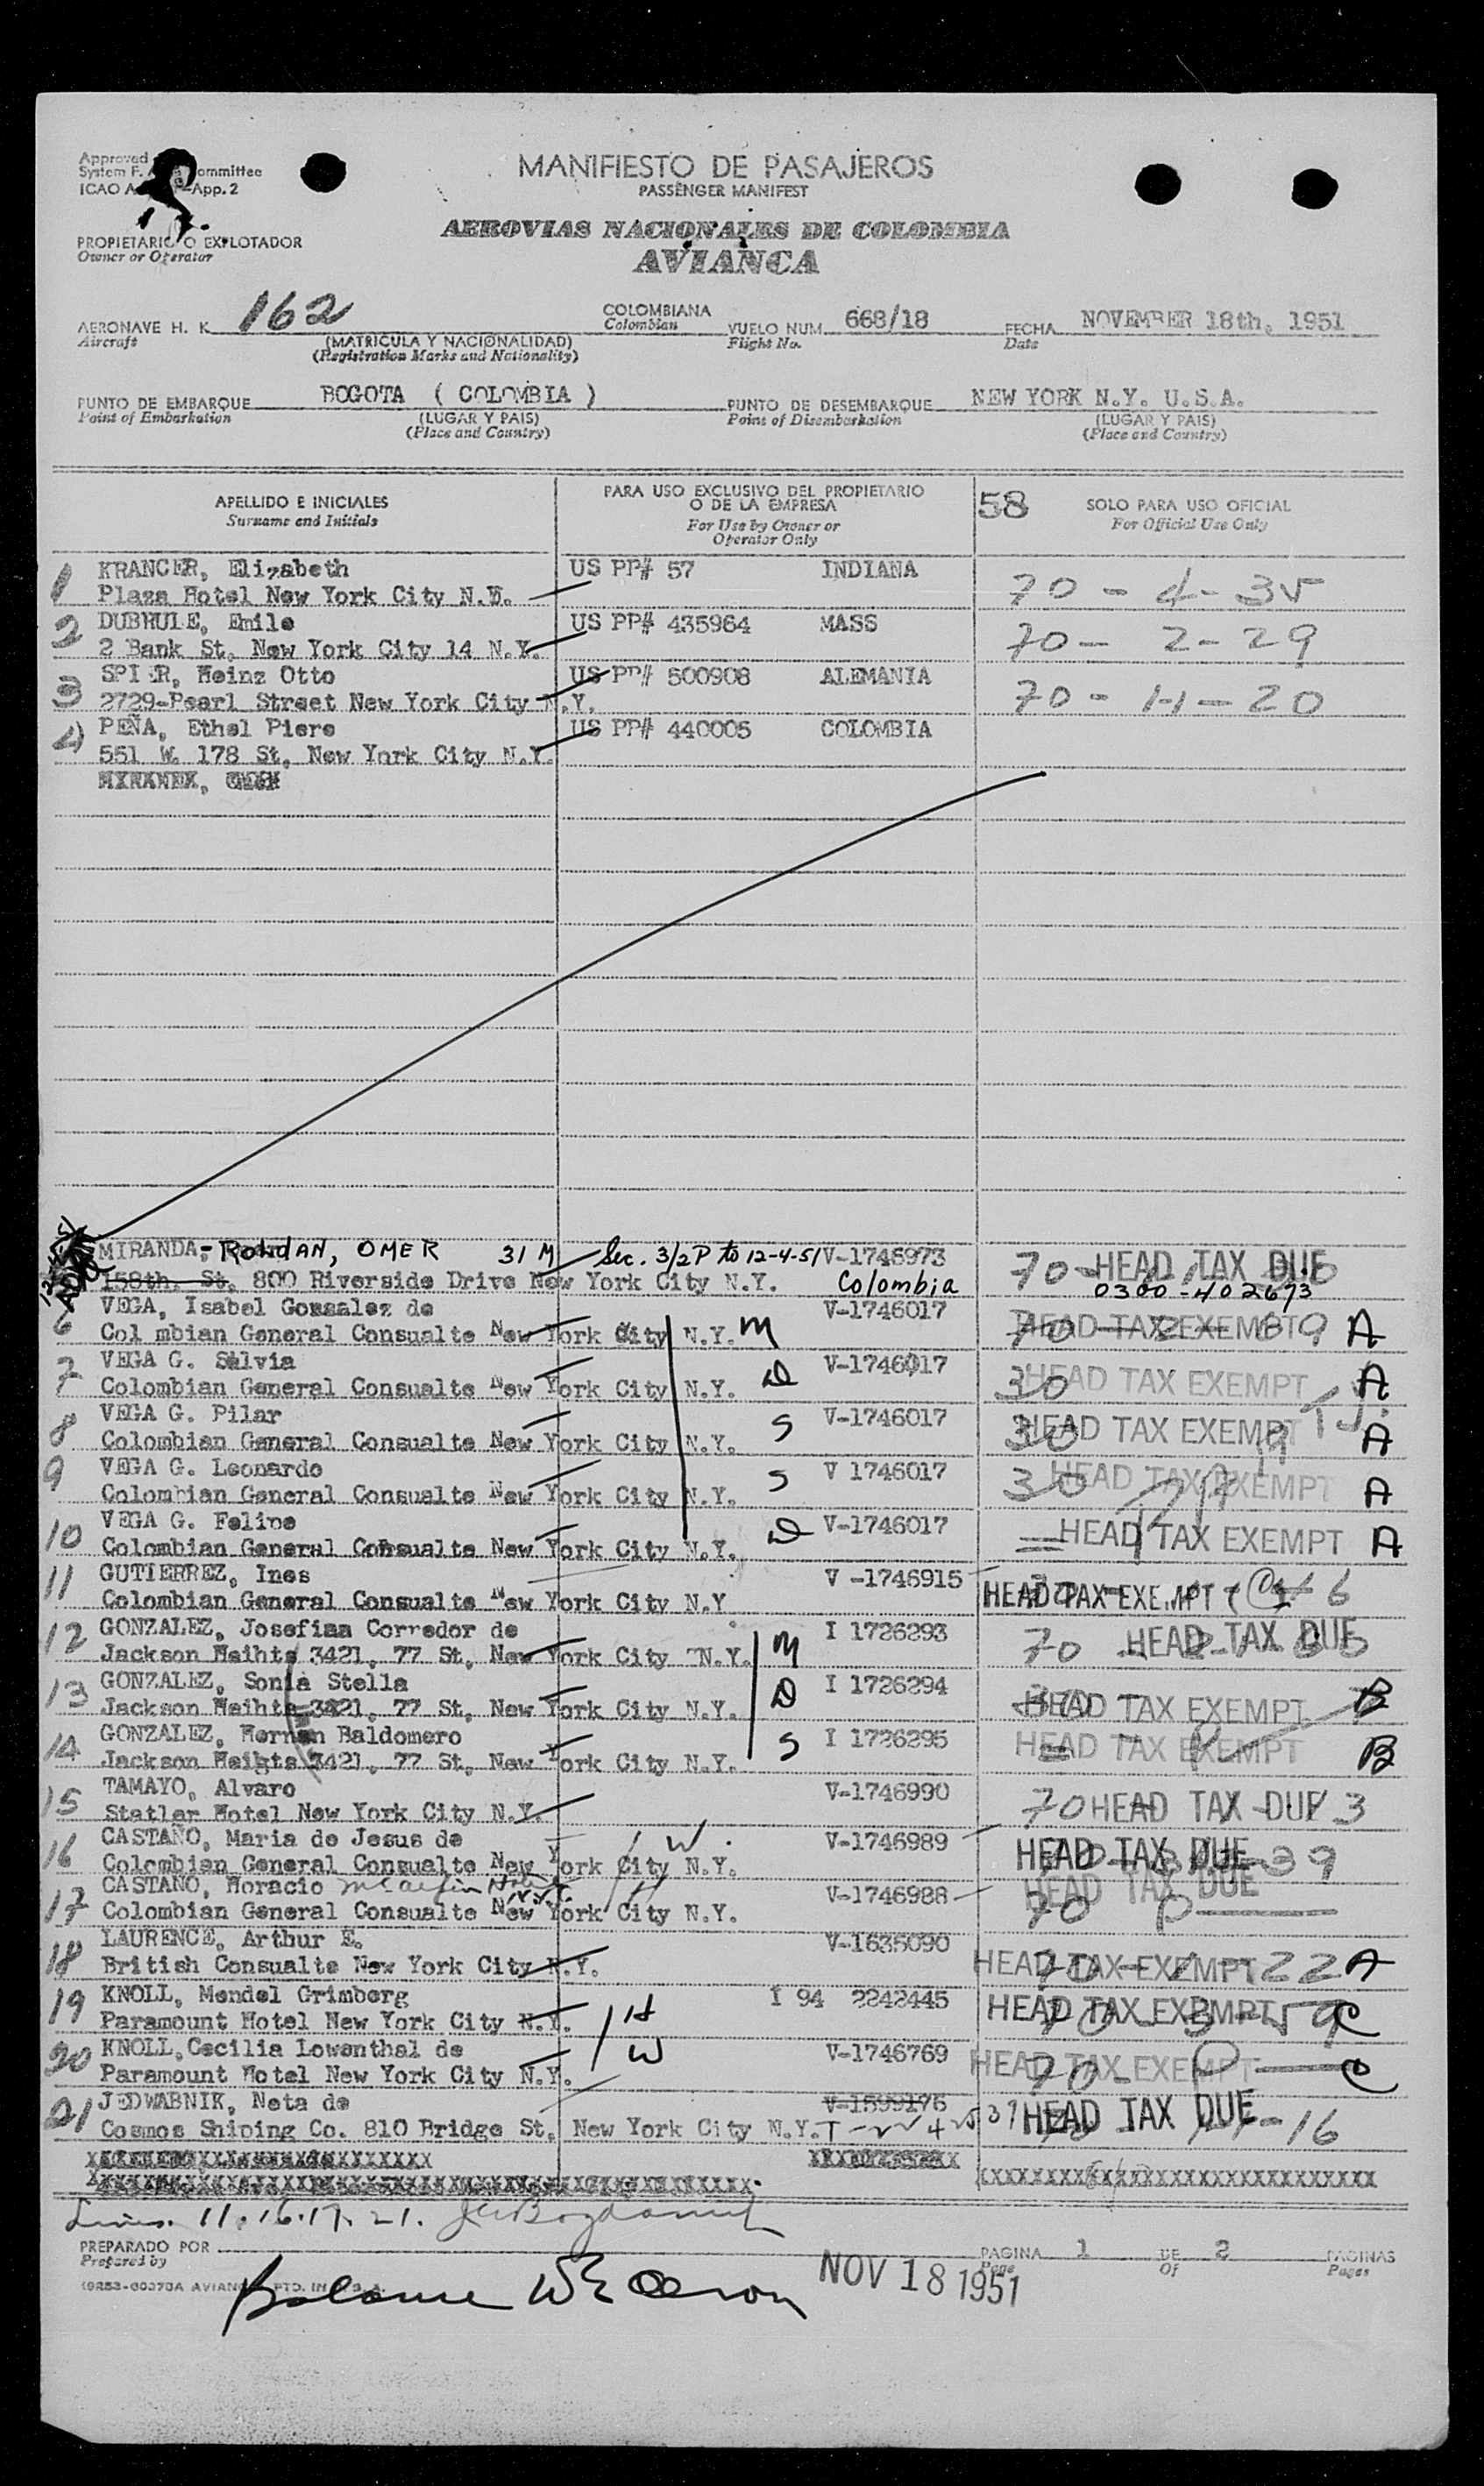 Approved
System F. ommittee
ICAO A -App. 2
MANIFIESTO DE PASAJEROS
PASSENGER MANIFEST
PROPIETARIO O EXPLOTADOR
Owner or Operator
AEROVIAS NACIONALES DE COLOMBIA
AVIANCA
AERONAVE H. K. 162 COLOMBIANA VUELO NUM. 668/18 FECHA NOVEMBER 18th, 1951
Aircraft (MATRICULA Y NACIONALIDAD) Colombian Flight No. Date
(Registration Marks and Nationality)
PUNTO DE EMBARQUE BOGOTA ( COLOMBIA ) PUNTO DE DESEMBARQUE NEW YORK N.Y. U.S.A.
Point of Embarkation (LUGAR Y PAIS) Point of Disembarkation (LUGAR Y PAIS)
(Place and Country) (Place and Country)
APELLIDO E INICIALES PARA USO EXCLUSIVO DEL PROPIETARIO O DE LA EMPRESA 58 SOLO PARA USO OFICIAL
Surname and Initials For Use by Owner or Operator Only For Official Use Only
1 KRANCER, Elizabeth US PP# 57 INDIANA
Plaza Hotel New York City N.Y. 70 - 4 - 35
2 DUBRULE, Emile US PP# 435964 MASS
2 Bank St, New York City 14 N.Y. 70 - 2 - 29
3 SPI ER, Heinz Otto US PP# 500908 ALEMANIA
2729-Pearl Street New York City N.Y. 70 - 11 - 20
4 PEÑA, Ethel Piere US PP# 440005 COLOMBIA
551 W. 178 St, New York City N.Y.
MIRANDA- ROLDAN, OMER 31 M Sec. 3/2P to 12-4-51 V-1746973 70- HEAD TAX DUE
158th. St, 800 Riverside Drive New York City N.Y. Colombia 0300-402673
6 VEGA, Isabel Gonzalez de V-1746017
Col mbian General Consualte New York City N.Y. M HEAD TAX EXEMPT A
7 VEGA G. Silvia V-1746017
Colombian General Consualte New York City N.Y. D HEAD TAX EXEMPT A
8 VEGA G. Pilar V-1746017
Colombian General Consualte New York City N.Y. S HEAD TAX EXEMPT A
9 VEGA G. Leonardo V 1746017
Colombian General Consualte New York City N.Y. S HEAD TAX EXEMPT A
10 VEGA G. Felipe V-1746017
Colombian General Consualte New York City N.Y. D HEAD TAX EXEMPT A
11 GUTIERREZ, Ines V -1746915
Colombian General Consualte New York City N.Y HEAD TAX EXEMPT
12 GONZALEZ, Josefina Corredor de I 1726293
Jackson Heihts 3421, 77 St, New York City N.Y. M 70 HEAD TAX DUE
13 GONZALEZ, Sonia Stella I 1726294
Jackson Heihts 3421, 77 St, New York City N.Y. D HEAD TAX EXEMPT B
14 GONZALEZ, Hernan Baldomero I 1726295
Jackson Heights 3421, 77 St, New York City N.Y. S HEAD TAX EXEMPT B
15 TAMAYO, Alvaro V-1746990
Statler Hotel New York City N.Y. 70 HEAD TAX DUE 3
16 CASTAÑO, Maria de Jesus de W V-1746989
Colombian General Consualte New York City N.Y. HEAD TAX DUE 39
17 CASTAÑO, Horacio H V-1746988
Colombian General Consualte New York City N.Y. HEAD TAX DUE 70
18 LAURENCE, Arthur E. V-1635090
British Consualte New York City N.Y. HEAD TAX EXEMPT 22 A
19 KNOLL, Mendel Grimberg I 94 2242445
Paramount Hotel New York City N.Y. H HEAD TAX EXEMPT C
20 KNOLL, Cecilia Lowenthal de W V-1746769
Paramount Hotel New York City N.Y. HEAD TAX EXEMPT C
21 JEDWABNIK, Neta de V-1599176
Cosmos Shiping Co. 810 Bridge St, New York City N.Y. HEAD TAX DUE -16
Lines. 11.16.17.21.
PREPARADO POR PAGINA 1 DE 2 PAGINAS
Prepared by Page Of Pages
NOV 18 1951